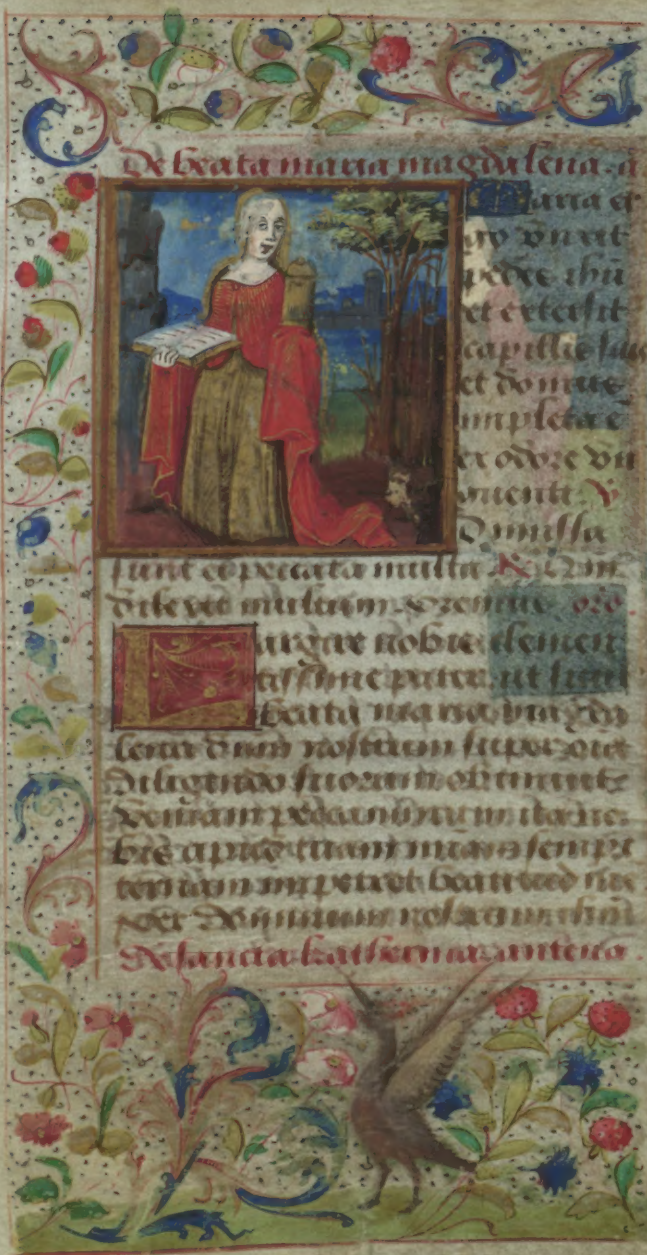 De beata maria magdalena. a
Maria er
go unxit
pedes ihu
et extersit
capillis suis
et domus
impleta e
ex odore un
guenti. V
Dimissa
sunt ei peccata multa. R. Qm
dilexit multum. Oremus. oro.
Largire nobis clemen
tissime pater. ut sicut
beata maria magda
lena dnm nostrum super oia
diligendo suorum obtinuit
veniam peccaminum. ita no
bis apud tuam miam sempi
ternam impetret beatitudine
per dominum nostrum ihm
De sancta katherina. antena.